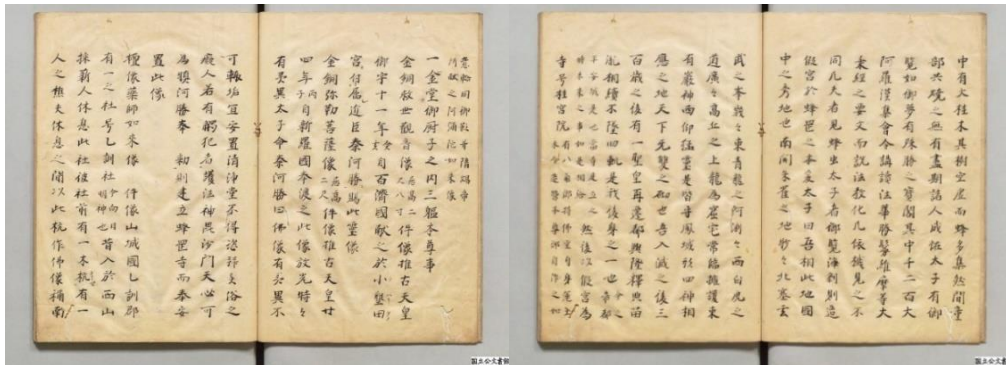 中有大桂木其樹空虚而蜂多集然間童
部共礙之無有盡期諸人成怪太子有御
覧如御夢有殊勝之寶閣其中千二百大
阿羅漢集會令講讃法華勝鬘維摩等大
乗経之要文而説法教化凡依餓見之不
同凡夫者見蜂虫太子者御覧
假宮於蜂岡之本爰太子曰吾相此地國
中之秀地也南開朱雀之地 北塞玄
武之峯峩々東青龍之河渕々西白虎之
道廣々高丘之上龍為窟宅常臨擁護東
有嚴神西仰猛霊是皆帝鳳城形四神相
應之地天下无雙之砌也吾入滅之後三
百歳之後有一聖皇再遷都興隆釋典苗
胤相續不墜旧軌是我後身之一也
然後以假宮為
寺号桂宮院
一金堂御厨子之内三躯本尊事
金銅救世観音像 件像推古天皇
御宇十一年 自百済國献之於小墾田
宮仰厩 臣秦河勝賜此霊像
金銅弥勒菩薩像 件像推古天皇廿
四年 自新羅國奉渡之此像放光時々
有恠異太子命秦河勝曰佛像有恠異不
可輙垢宜安置清浄堂不得恣詣大俗之
癡人若有觸犯者護法神毘沙門天必可
為損河勝奉 勅則建立蜂岡寺而奉安
置此像
檀像薬師如来像 件像山城國乙訓郡
有一之社号乙訓社 昔入於西山
採薪人休息此社彼社前有一木杭有一
人之樵夫休息之間以此杭作佛像稱南
国立公文書館
国立公文書館